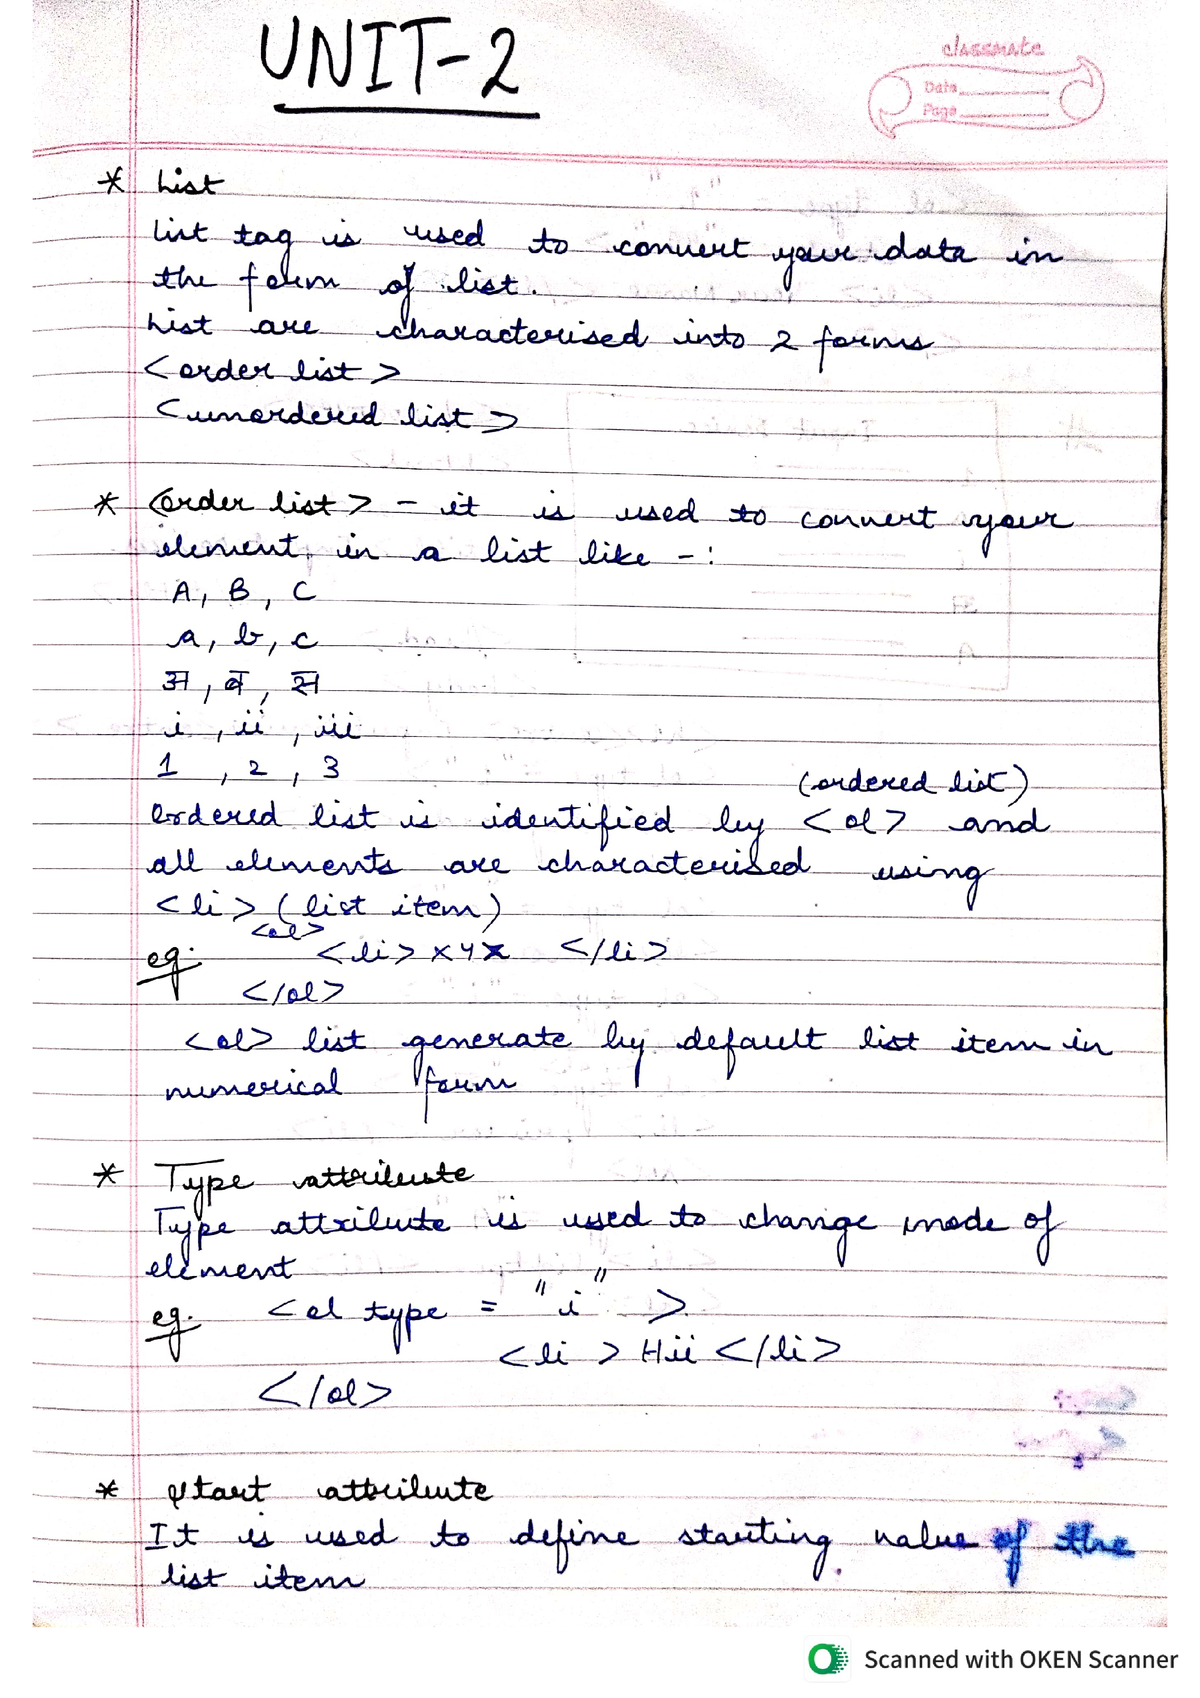 UNIT-2
classmate
Date
Page
* List
List tag is used to convert your data in
the form of list.
List are characterised into 2 forms
<order list>
<unordered list>
* <order list> - it is used to convert your
element in a list like -:
A, B, C
a, b, c
अ, ब, स
i, ii, iii
1, 2, 3
(ordered list)
Ordered list is identified by <ol> and
all elements are characterised using
<li> (list item)
<ol>
eg: <li> xyx </li>
</ol>
<ol> list generate by default list item in
numerical form
* Type attribute
Type attribute is used to change mode of
element
eg. <ol type = "i">
<li> Hii </li>
</ol>
* start attribute
It is used to define starting value of the
list item
Scanned with OKEN Scanner